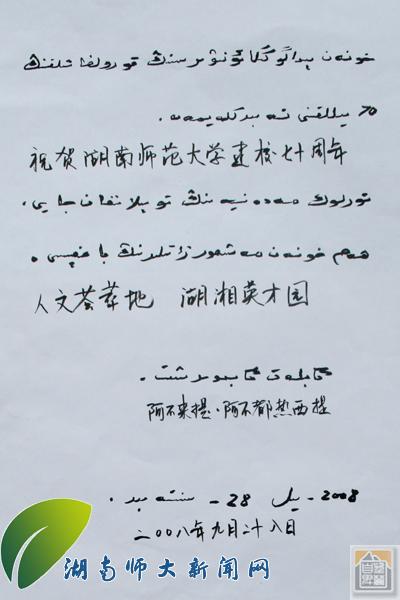 خونەن پىداگوگكا ئونۋېرستنىڭ قورولغانلقنىڭ
70 يىللقىنى تەبرىكلەيمەن.
祝贺湖南师范大学建校七十周年
تورلوك مەدەنىيەتنىڭ توپلانغان جايى،
ھەم خونەن مەشھور زاتلىرنىڭ باغچىسى.
人文荟萃地 湖湘英才园
ئابلەت ئابدورشت.
阿不来提·阿不都热西提
2008-يىل 28-سنتەبىر.
二〇〇八年九月二十八日
湖南师大新闻网